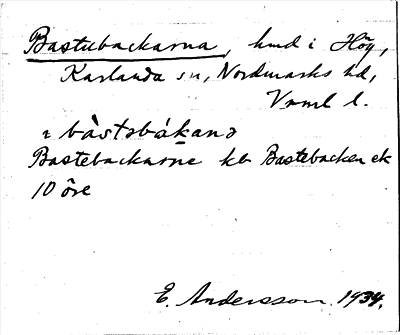 Bastubackarna, hmd i Hög,
Karlanda sn, Nordmarks hd,
Vrml l.
bàstəbákanə
Bastebackarne kb Bastebacken ek
10 öre
E. Andersson 1934.